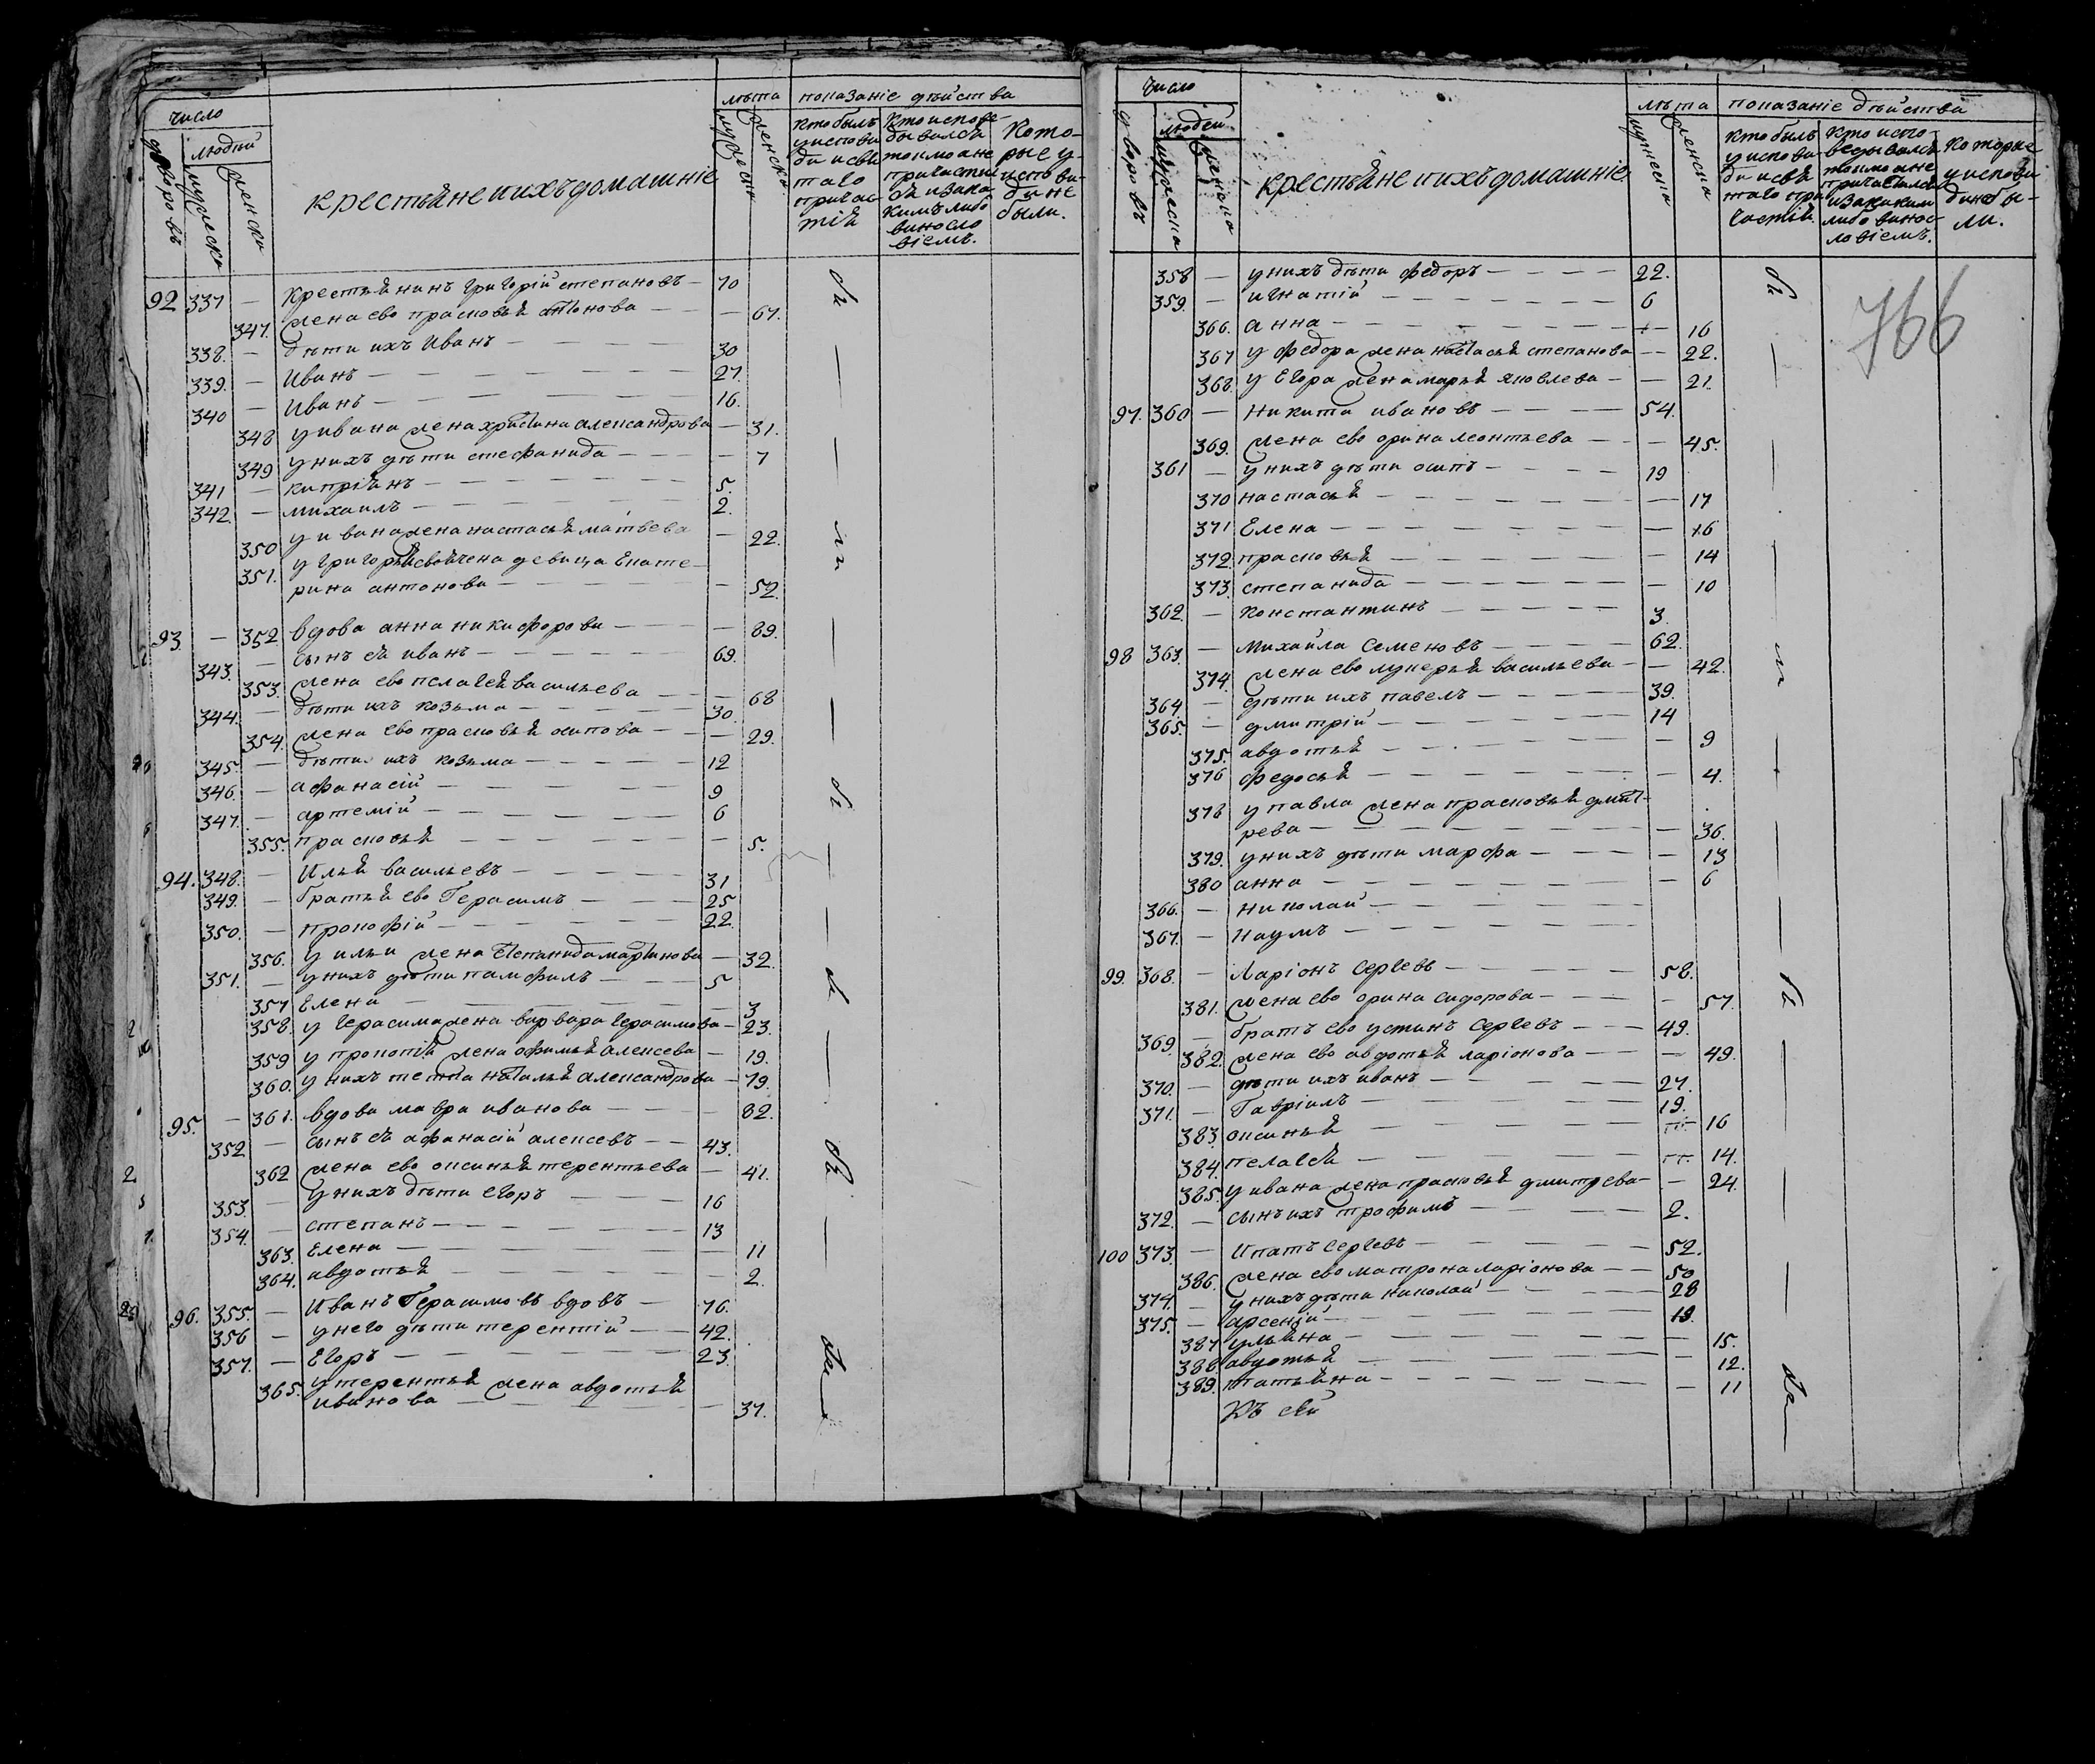 число
людей
дворовъ
мужеска
женска
крестьяне и ихъ домашніе
лѣта
мужеска
женска
показаніе дѣйства
кто былъ у исповеди и святаго причастія
кто исповедывался токмо а не причастился и за какимъ либо винословіемъ.
Которые у исповеди не были.
92 337 — Крестьянинъ Григорій степановъ — 70
347. жена ево прасковья антонова — — 67.
338. — дѣти ихъ Иванъ — 30
339. — Иванъ — 27.
340 — Иванъ — 16.
348 у ивана жена христина александрова — 31.
349 у нихъ дѣти стефанида — — 7
341 — кипріянъ — 5.
342. — михаилъ — 2.
350 у ивана жена настасья матвева — 22.
351. у григорья своячена девица Екате-
рина антонова — — 52.
93 — 352 вдова анна никифорова — — 89.
343. — сынъ ея иванъ — 69.
353. жена ево пелагея васильева — — 68
344. — дѣти ихъ козьма — 30.
354. жена ево прасковья осипова — — 29.
345. — дѣти ихъ козьма — 12
346. — афанасій — 9
347. — артемій — 6
355. прасковья — — 5.
94. 348. — Илья васильевъ — 31
349. — братья ево Герасимъ — 25
350. — прокофій — 22.
356. у ильи жена степанида мартинова — 32.
351. — у нихъ дѣти памфилъ — 5
357 Елена — — 3
358. у герасима жена варвара герасимова — 23.
359 у прокопія жена офимья алексева — 19.
360. у нихъ тетка наталья александрова — 79.
95. — 361. вдова мавра иванова — — 82.
352 — сынъ ея афанасій алексевъ — 43.
362 жена ево оксинья терентьева — 41.
353. — у нихъ дѣти егоръ — 16
354. — степанъ — 13
363. Елена — 11
364. авдотья — — 2.
96. 355. — Иванъ Герасимовъ вдовъ — 76.
356 — у него дѣти терентій — 42.
357. — Егоръ — 23.
365. у терентья жена авдотья
иванова — — 37.
число
людей
дворовъ
мужеска
женска
крестьяне и ихъ домашніе
лѣта
мужеска
женска
показаніе дѣйства
кто былъ у исповеди и святаго причастія.
кто исповедывался токмо а не причастился и за какимъ либо винословіемъ.
Которые у исповеди не были.
766
358 — у нихъ дѣти федоръ — 22.
359. — игнатій — 6
366. анна — — 16
367 у федора жена настасья степанова — 22.
368. у Егора жена марья яковлева — — 21.
97. 360 — никита ивановъ — 54.
369. жена ево орина леонтьева — — 45.
361 — у нихъ дѣти осипъ — 19
370 настасья — — 17
371 Елена — — 16
372. прасковья — — 14
373. степанида — — 10
362. — Константинъ — 3.
98 363. — михайла Семеновъ — 62.
374. жена ево лукерья васильева — — 42.
364 — дѣти ихъ павелъ — 39.
365. — дмитрій — 14
375. авдотья — — 9
376 федосья — — 4.
378 у павла жена прасковья дмит-
рева — — 36.
379. у нихъ дѣти марфа — — 13
380 анна — — 6
366. — николай —
367. — наумъ —
99. 368. — Ларіонъ Сергевъ — 58.
381. жена ево орина сидорова — — 57.
369. — братъ ево устинъ Сергевъ — 49.
382. жена ево авдотья ларіонова — — 49.
370. — дѣти ихъ иванъ — 27.
371. — Гавріилъ — 19.
383. оксинья — 16
384. пелагея — 14.
385. у ивана жена прасковья дмитрева — — 24.
372. — сынъ ихъ трофимъ — 2.
100 373. — Ипатъ Сергевъ — 52.
386. жена ево матрона ларіонова — 50
374. — у нихъ дѣти николай — 28
375. — арсеній — 19.
387 ульяна — — 15.
388 авдотья — — 12.
389. татьяна — — 11